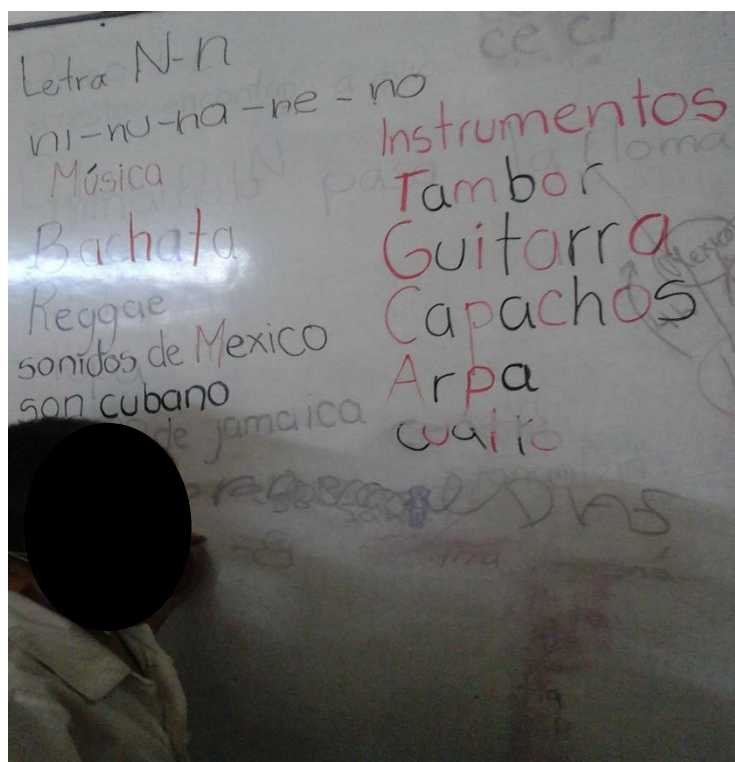 Letra N-n
ni-nu-na-ne-no
Música
Bachata
Reggae
sonidos de Mexico
son cubano
de jamaica
Instrumentos
Tambor
Guitarra
Capachos
Arpa
cuatro
Mexico
ce ci